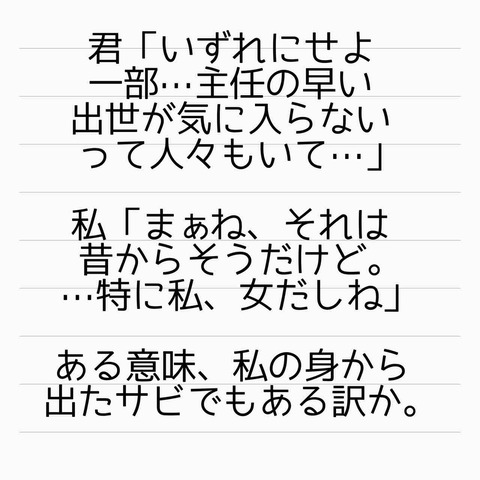 君「いずれにせよ
一部…主任の早い
出世が気に入らない
って人々もいて…」
私「まぁね、それは
昔からそうだけど。
…特に私、女だしね」
ある意味、私の身から
出たサビでもある訳か。